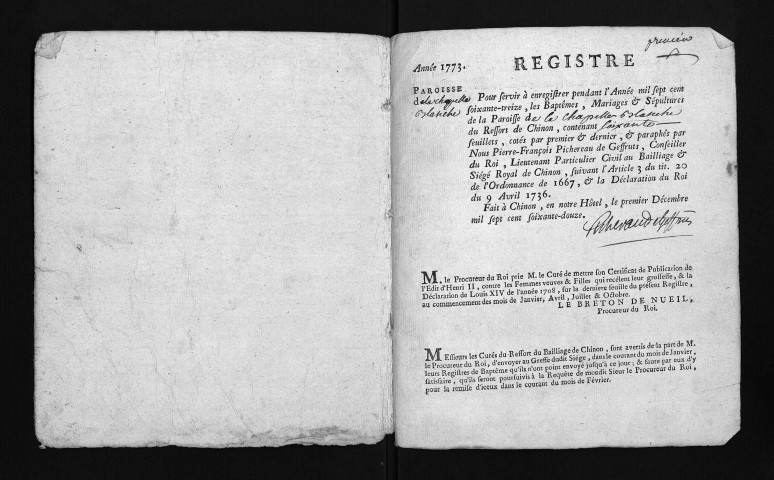 premier
Année 1773.
REGISTRE
PAROISSE
de la chapelle
blanche
Pour servir à enregistrer pendant l'Année mil sept cent
soixante-treize, les Baptêmes, Mariages & Sépultures
de la Paroisse de la chapelle blanche
du Ressort de Chinon, contenant soixante
feuillets, cotés par premier & dernier, & paraphés par
Nous Pierre-François Pichereau de Geffruts, Conseiller
du Roi, Lieutenant Particulier Civil au Bailliage &
Siégé Royal de Chinon, suivant l'Article 3 du tit. 20
de l'Ordonnance de 1667, & la Déclaration du Roi
du 9 Avril 1736.
Fait à Chinon, en notre Hôtel, le premier Décembre
mil sept cent soixante-douze.
M. le Procureur du Roi prie M. le Curé de mettre son Certificat de Publication de
l'Edit d'Henri II, contre les Femmes veuves & Filles qui recélent leur grossesse, & la
Déclaration de Louis XIV de l'année 1708, sur la derniere feuille du présent Registre,
au commencement des mois de Janvier, Avril, Juillet & Octobre.
LE BRETON DE NUEIL,
Procureur du Roi.
MEssieurs les Curés du Ressort du Bailliage de Chinon, sont avertis de la part de M.
le Procureur du Roi, d'envoyer au Greffe dudit Siége, dans le courant du mois de Janvier,
leurs Registres de Baptême qu'ils n'ont point envoyé jusqu'à ce jour; & faute par eux d'y
satisfaire, qu'ils seront poursuivis à la Requête de mondit Sieur le Procureur du Roi,
pour la remise d'iceux dans le courant du mois de Février.